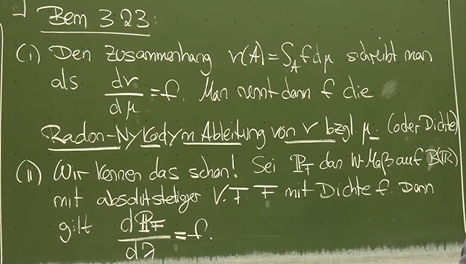 Bem 3.23:
(i) Den Zusammenhang ν(A) = ∫_A f dμ schreibt man
als dν/dμ = f. Man nennt dann f die
Radon-Nykodym Ableitung von ν bzgl μ. (oder Dichte)
(ii) Wir kennen das schon! Sei ℙ_F das W-Maß auf B(ℝ)
mit absolutstetiger V.F F mit Dichte f. Dann
gilt dℙ_F/dλ = f.